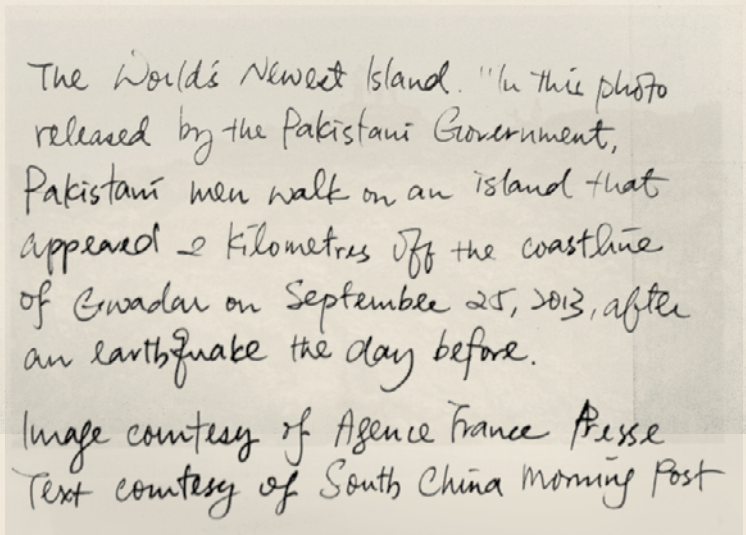 The World's Newest Island. "In this photo
released by the Pakistani Government,
Pakistani men walk on an island that
appeared 2 kilometres off the coastline
of Gwadar on September 25, 2013, after
an earthquake the day before.
Image courtesy of Agence France Presse
Text courtesy of South China Morning Post